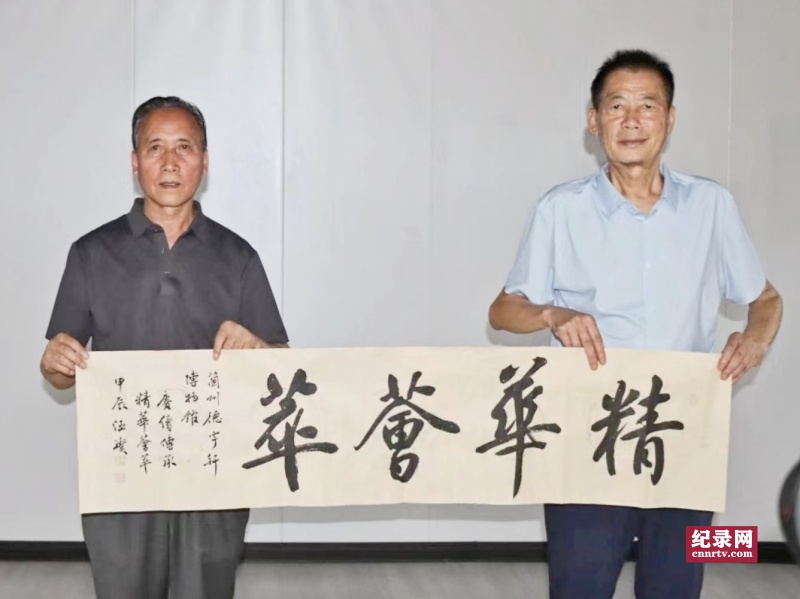 精華薈萃
蘭州德宇軒
博物館
賡續傳承
精華薈萃
甲辰
纪录网
cnnrtv.com